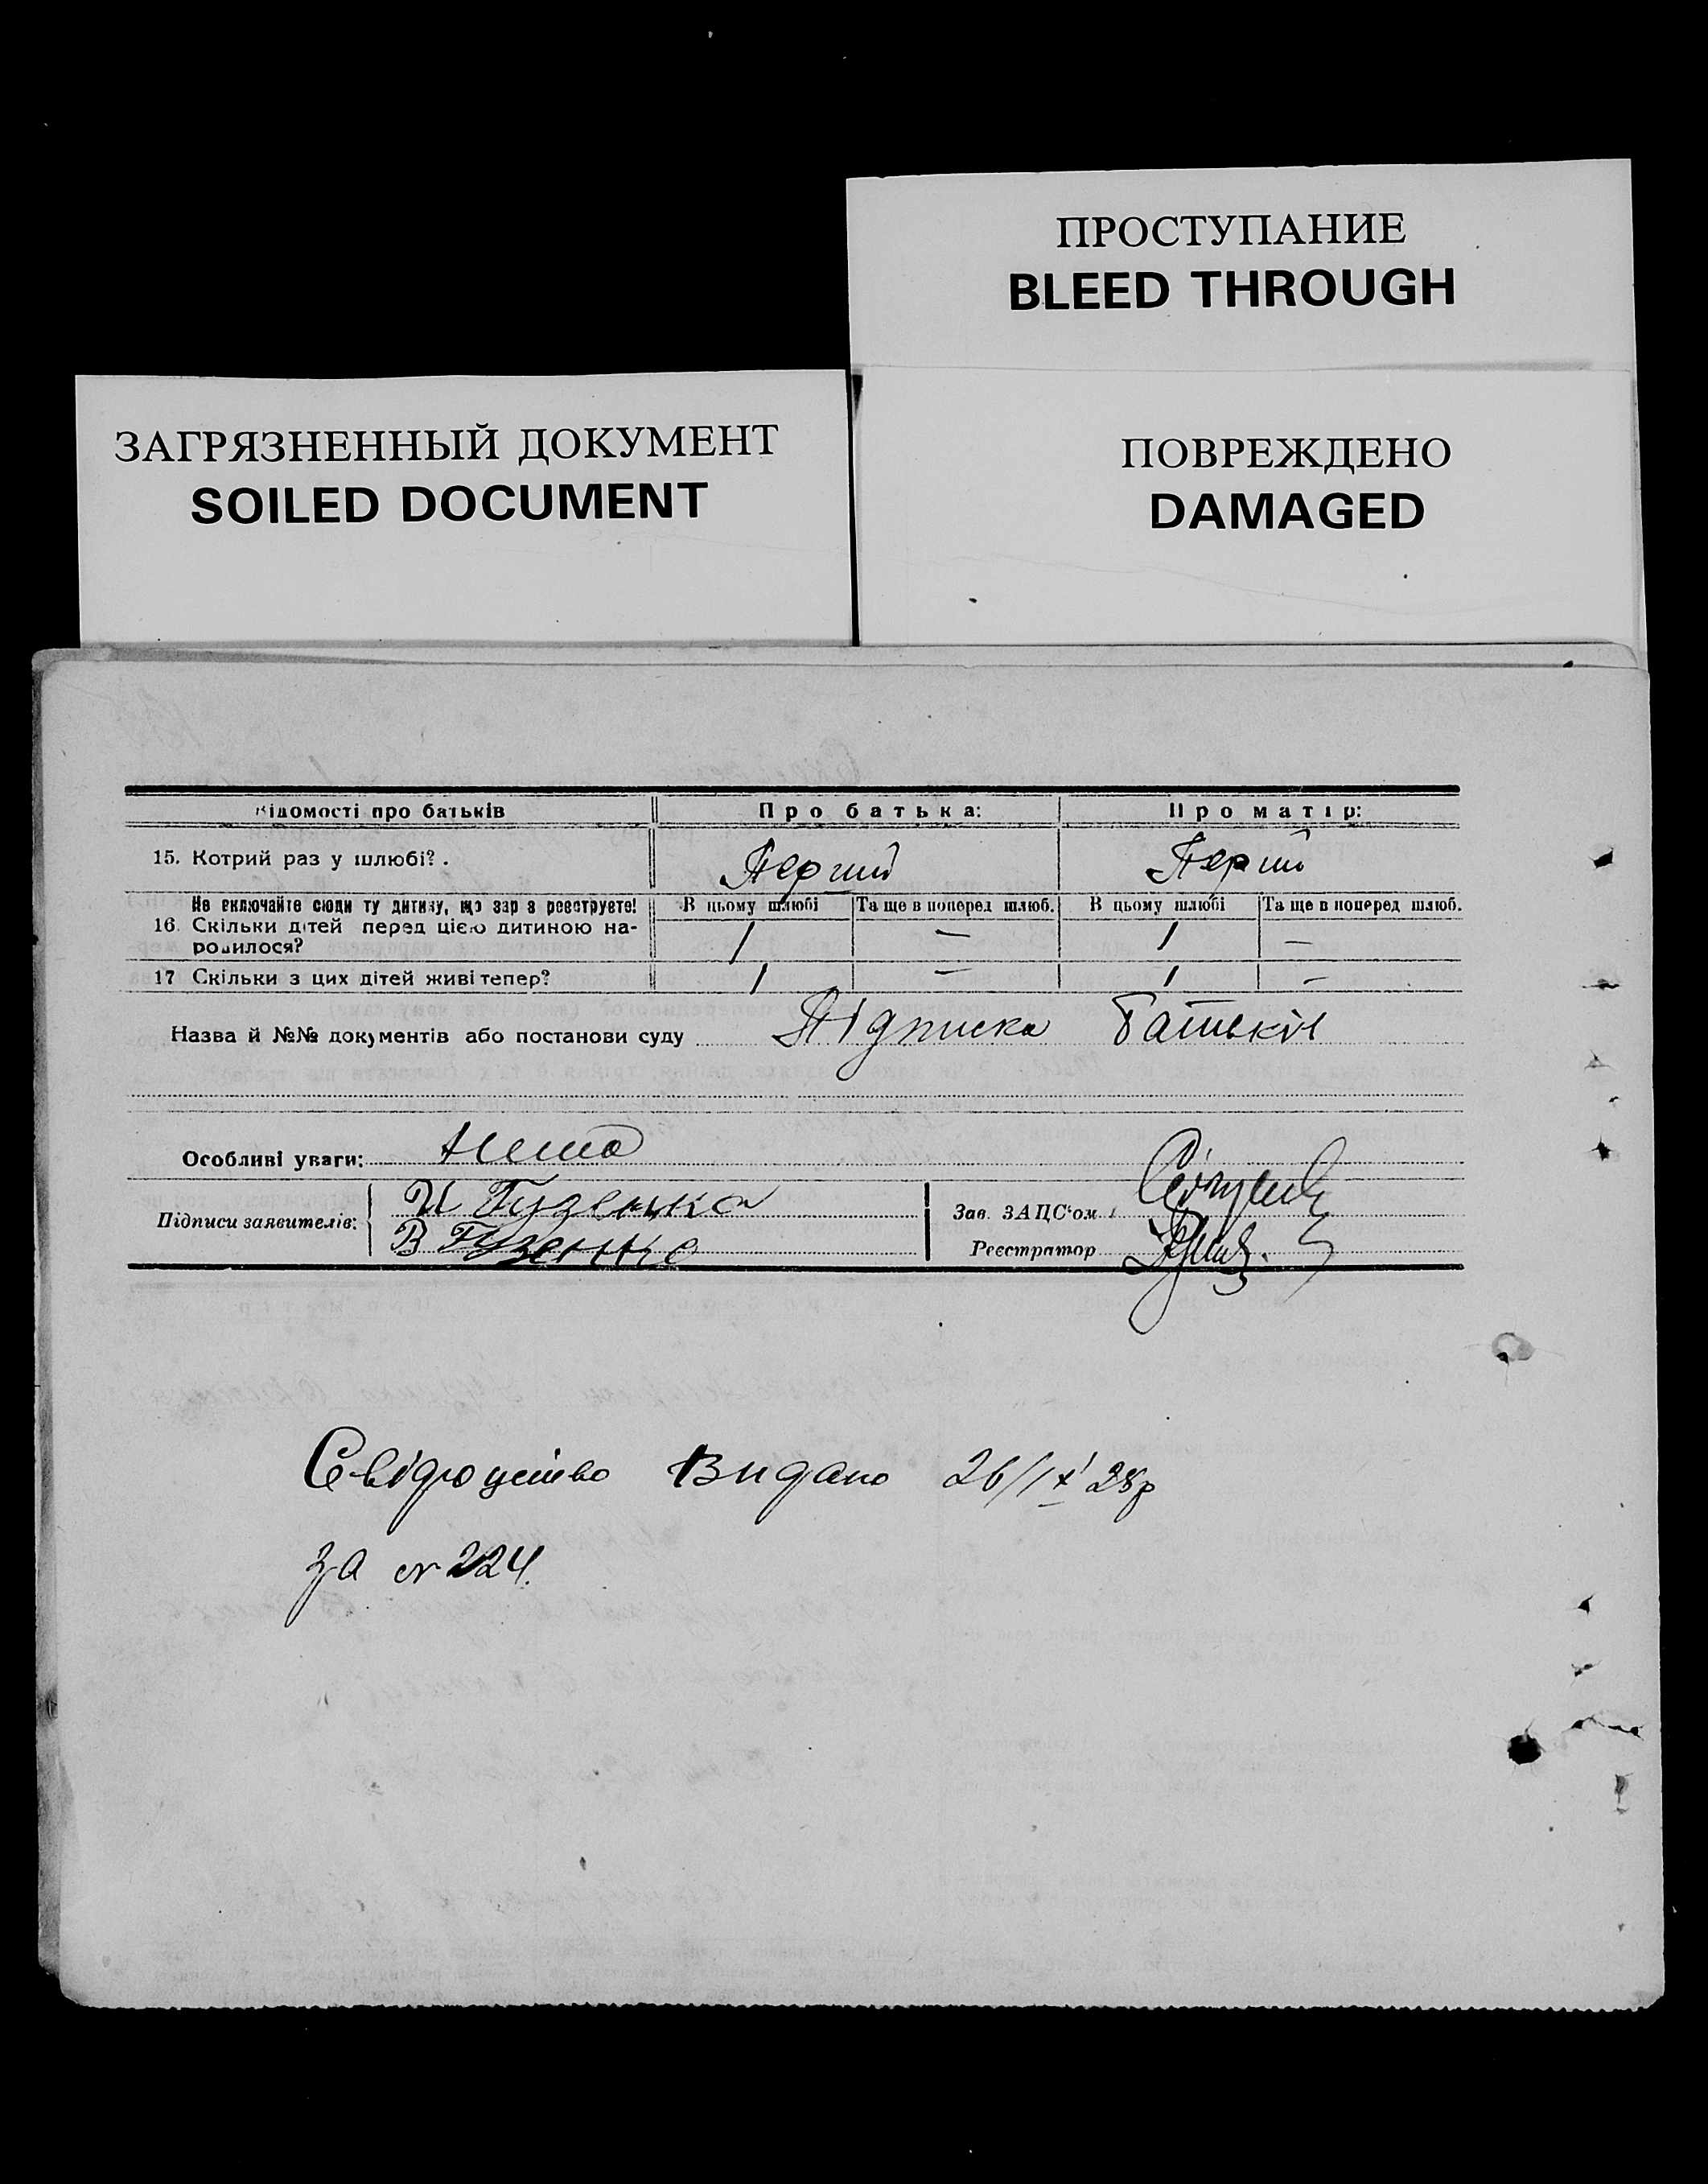 ПРОСТУПАНИЕ
BLEED THROUGH
ЗАГРЯЗНЕННЫЙ ДОКУМЕНТ
SOILED DOCUMENT
ПОВРЕЖДЕНО
DAMAGED
Відомості про батьків Про батька: Про матір:
15. Котрий раз у шлюбі?. Перший Перший
Не включайте сюди ту дитину, що зараз реєструєте! В цьому шлюбі Та ще в поперед шлюб. В цьому шлюбі Та ще в поперед шлюб.
16. Скільки дітей перед цією дитиною на-
родилося? 1 — 1 —
17 Скільки з цих дітей живі тепер? 1 — 1 —
Назва й №№ документів або постанови суду Підписка Батьків
Особливі уваги: Нема
Підписи заявителів: И Гузенко
В Гузенко
Зав. ЗАЦС'ом
Реєстратор
Свідоцтво Видано 26/IX 28р
за № 224.